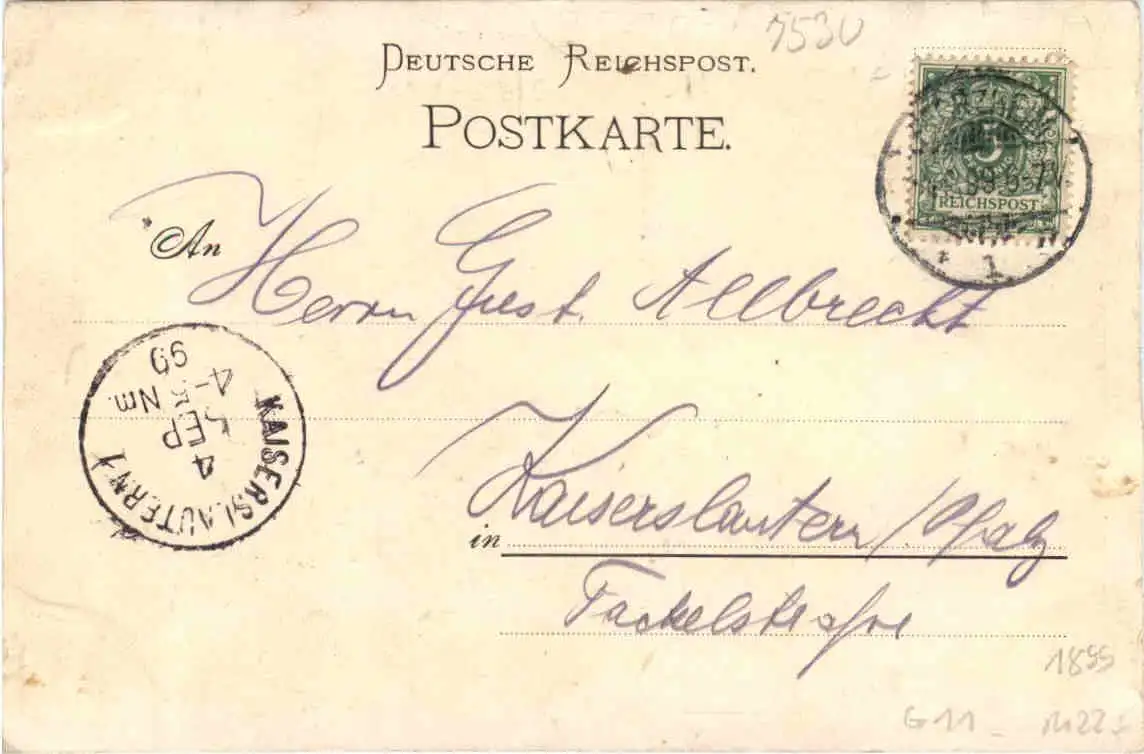 7530
DEUTSCHE REICHSPOST.
POSTKARTE.
5
REICHSPOST
99 6-7V
1
An Herrn Gust. Allbrecht
KAISERSLAUTERN 1
4
SEP
4-5 Nm.
99
in Kaiserslautern / Pfalz
Fackelstrasse
1899
G 11